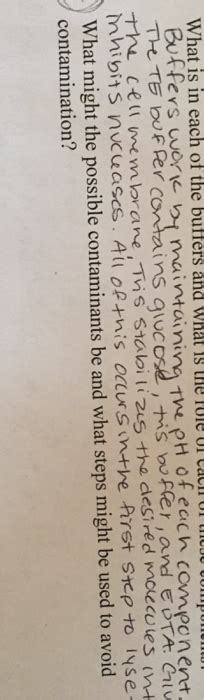 What is in each of the buffers and what is the role of each of these
Buffers work by maintaining the pH of each component.
The TE buffer contains glucose, tris buffer, and EDTA.
the cell membrane, Tris stabilizes the desired molecules
inhibits nucleases. All of this occurs in the first step to lyse
What might the possible contaminants be and what steps might be used to avoid
contamination?